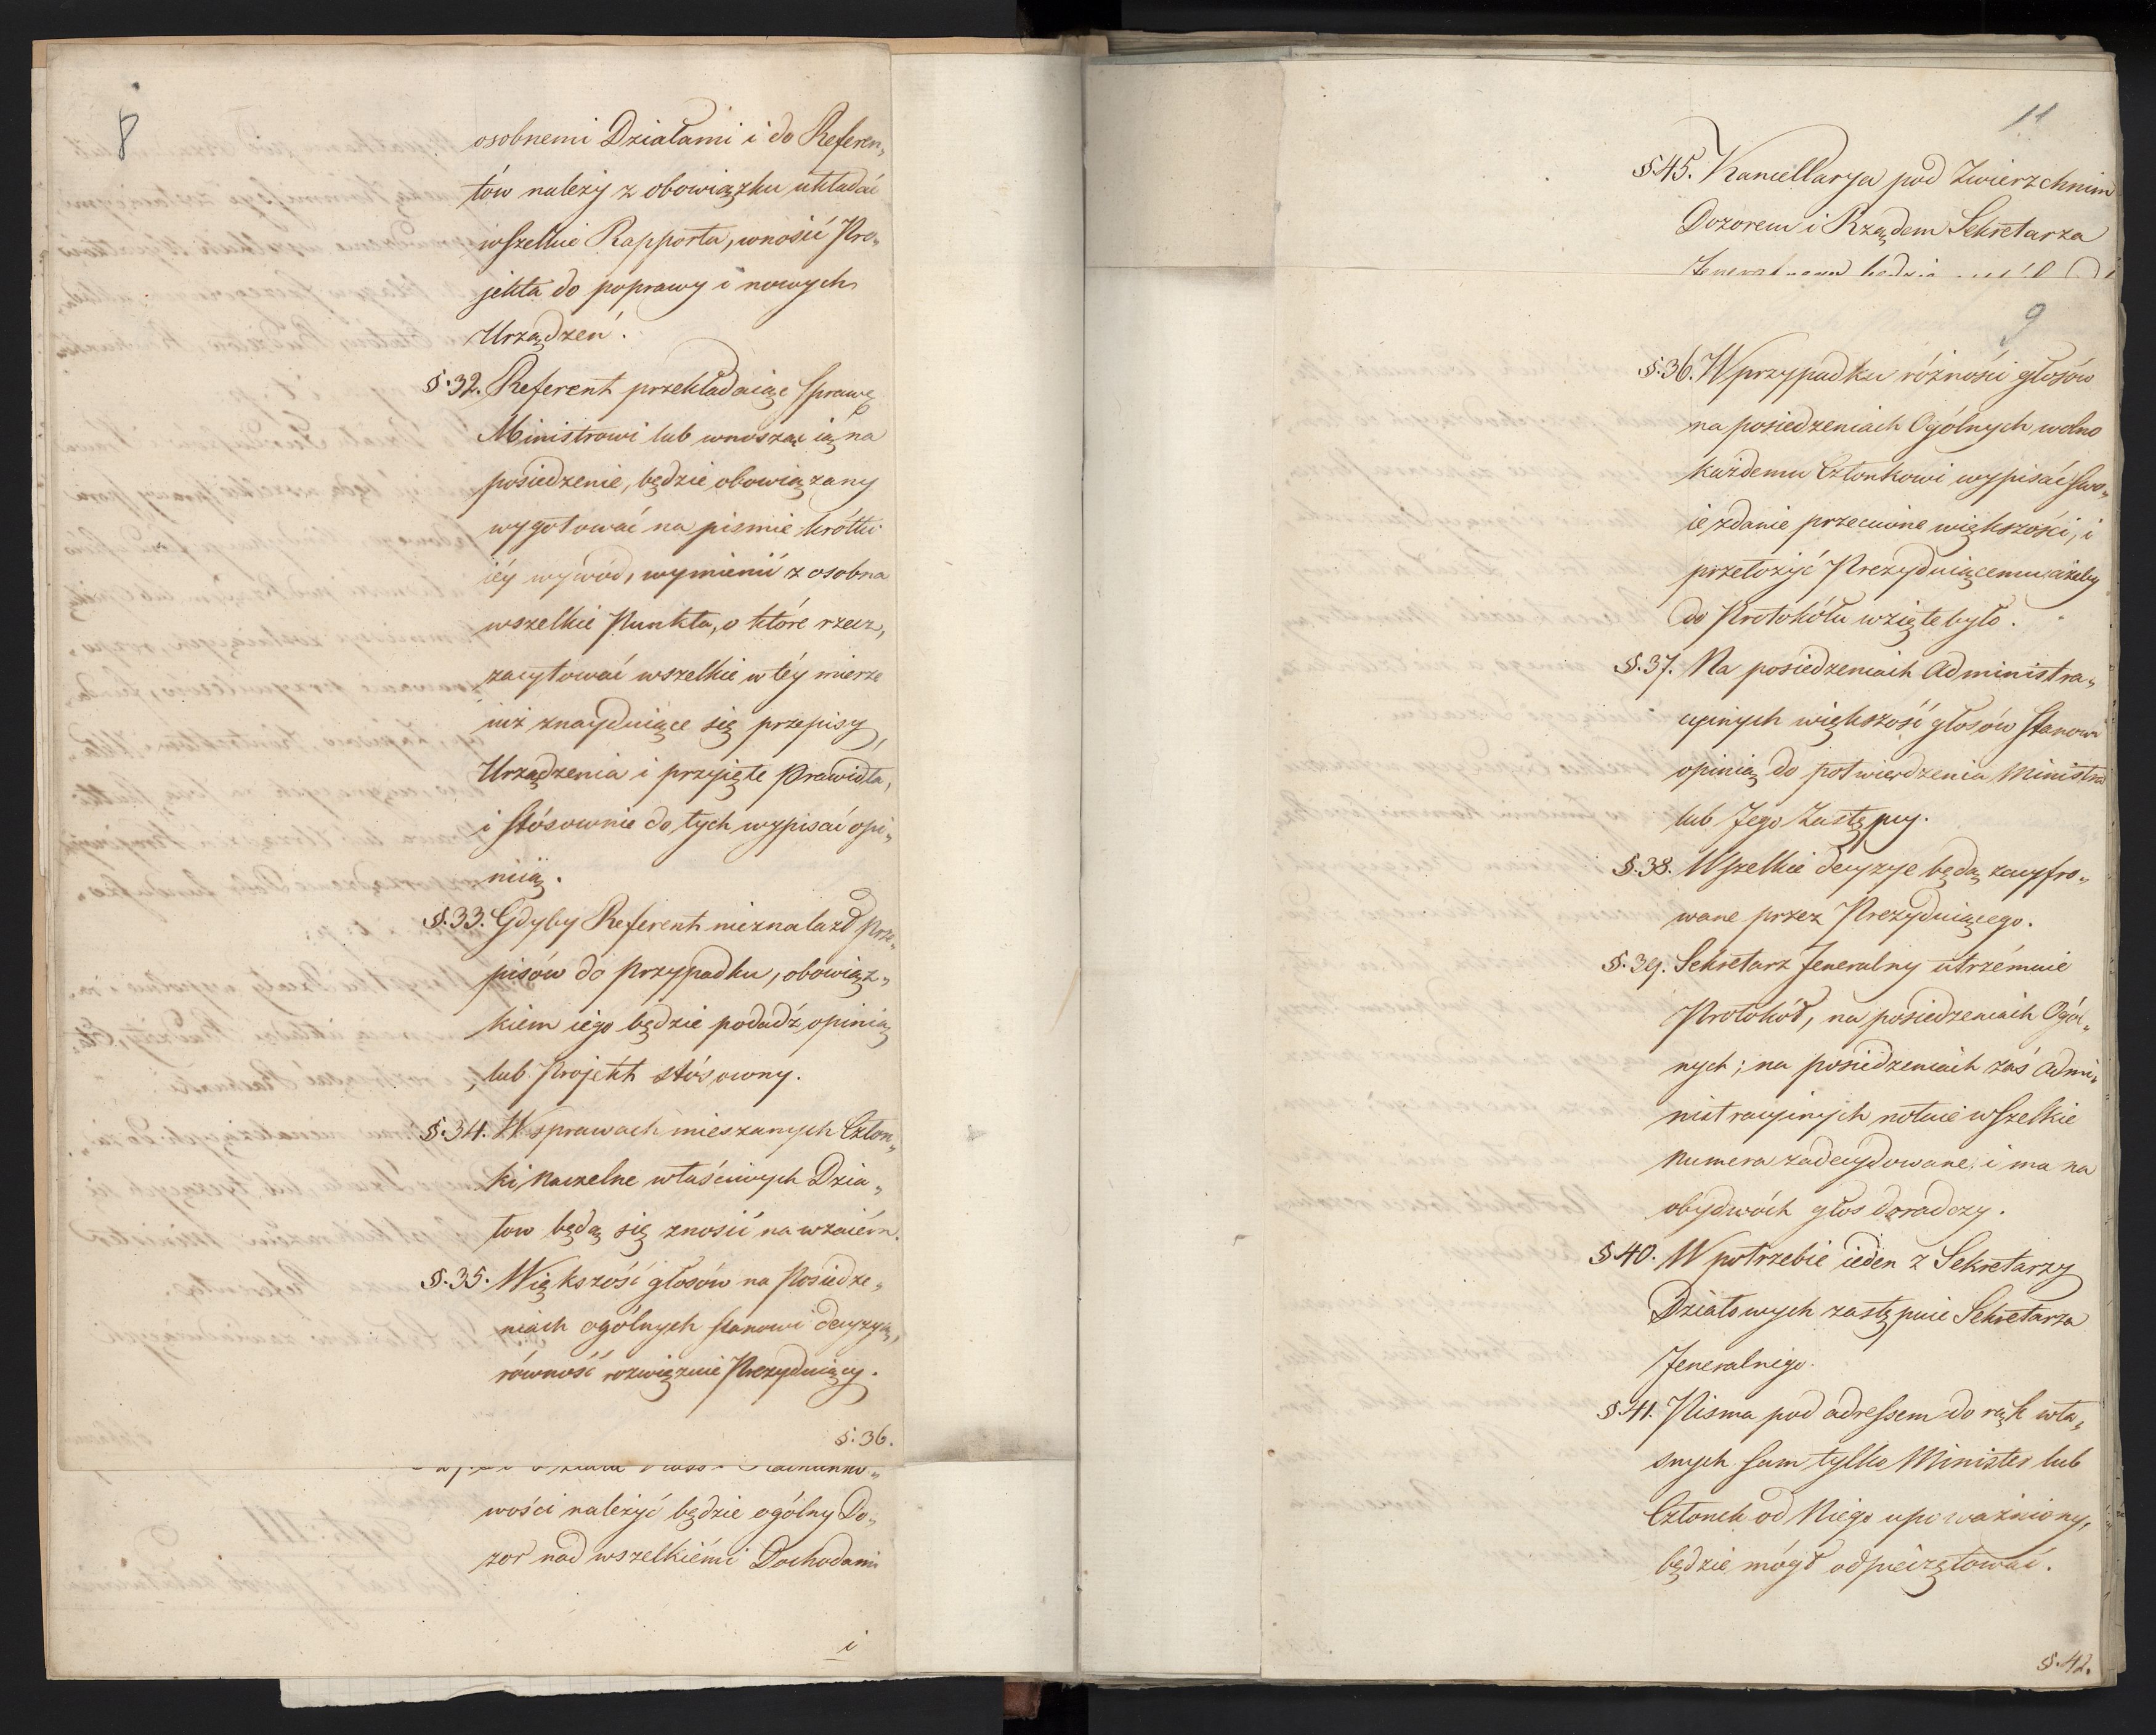 8
osobnemi Działami i do Referen„
tów należy z obowiązku układać
wszelkie Rapporta, wnosić Pro„
jekta do poprawy i nowych
Urządzeń.
§.32. Referent przekładaiąc sprawę
Ministrowi lub wnosząc ią na
posiedzenie, będzie obowiązany
wygotować na pismie krótki
iéy wywód, wymienić z osobna
wszelkie Punkta, o które rzecz,
zacytować wszelkie w téy mierze
iuż znayduiące się przepisy,
Urządzenia i przyięte prawidła,
i stósownie do tych wypisać opi„
niią.
§.33. Gdyby Referent nieznalazł prze„
pisów do przypadku, obowiąz„
kiem iego będzie podadź opinią
lub Projekt stósowny.
§.34. W sprawach mieszanych Człon„
ki Naczelne właściwych Dzia„
łow będą się znosić nawzaiém.
§.35. Większość głosów na Posiedze„
niach ogólnych stanowi decyzyą,
równość rozwiązuie Prezyduiący.
§.36.
wości należyć będzie ogólny Do„
zor nad wszelkiémi Dochodami
i
11
§45. Kancellarya pod Zwierzchnim
Dozorem i Rządem Sekretarza
9
§.36. W przypadku różności głosów
na posiedzeniach Ogólnych wolno
każdemu Członkowi wypisać swo„
ie zdanie przeciwne większości, i
przełożyć Prezyduiącemu ażeby
do Protokółu wzięte było.
§.37. Na posiedzeniach Administra„
cyinych większość głosów stanowi
opinią do potwierdzenia Ministra
lub Jego Zastępcy.
§.38. Wszelkie decyzye będą zacyfro„
wane przez Prezyduiącego.
§.39. Sekretarz Jeneralny utrzémuie
Protokół, na posiedzeniach Ogól„
nych; na posiedzeniach zaś Admi„
nistracyinych notuie wszelkie
Numera zadecydowane i ma na
obydwóch głos doradczy.
§40. W potrzebie ieden z Sekretarzy
Działowych zastępuie Sekretarza
Jeneralnego.
§41. Pisma pod adressem do rąk wła„
snych sam tylko Minister lub
Członek od Niego upoważniony,
będzie mógł odpieczętować.
§.42.